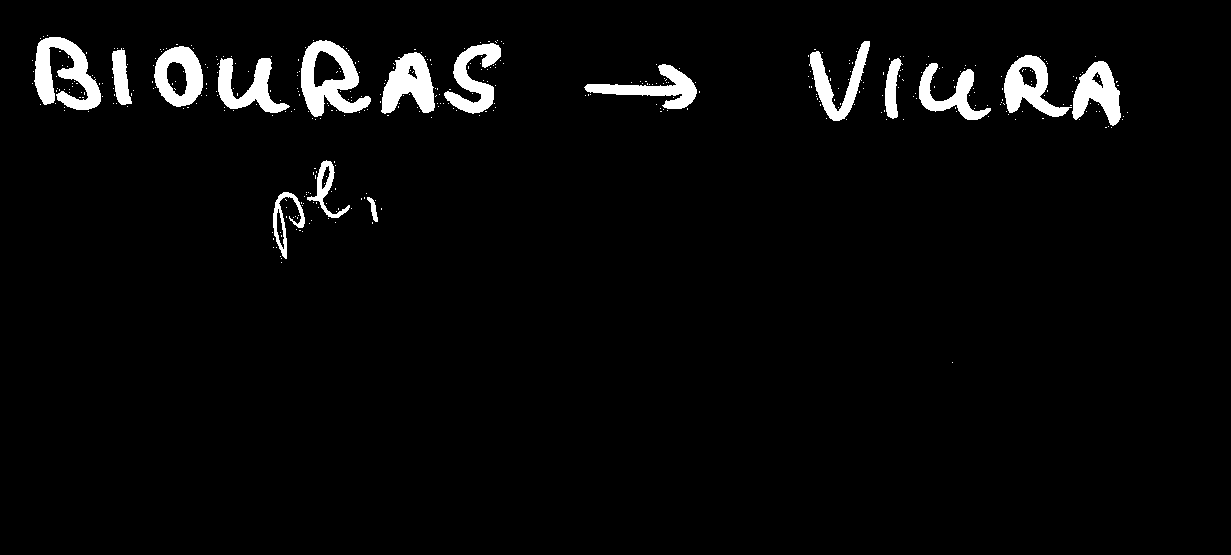 BIOURAS → VIURA
pl,